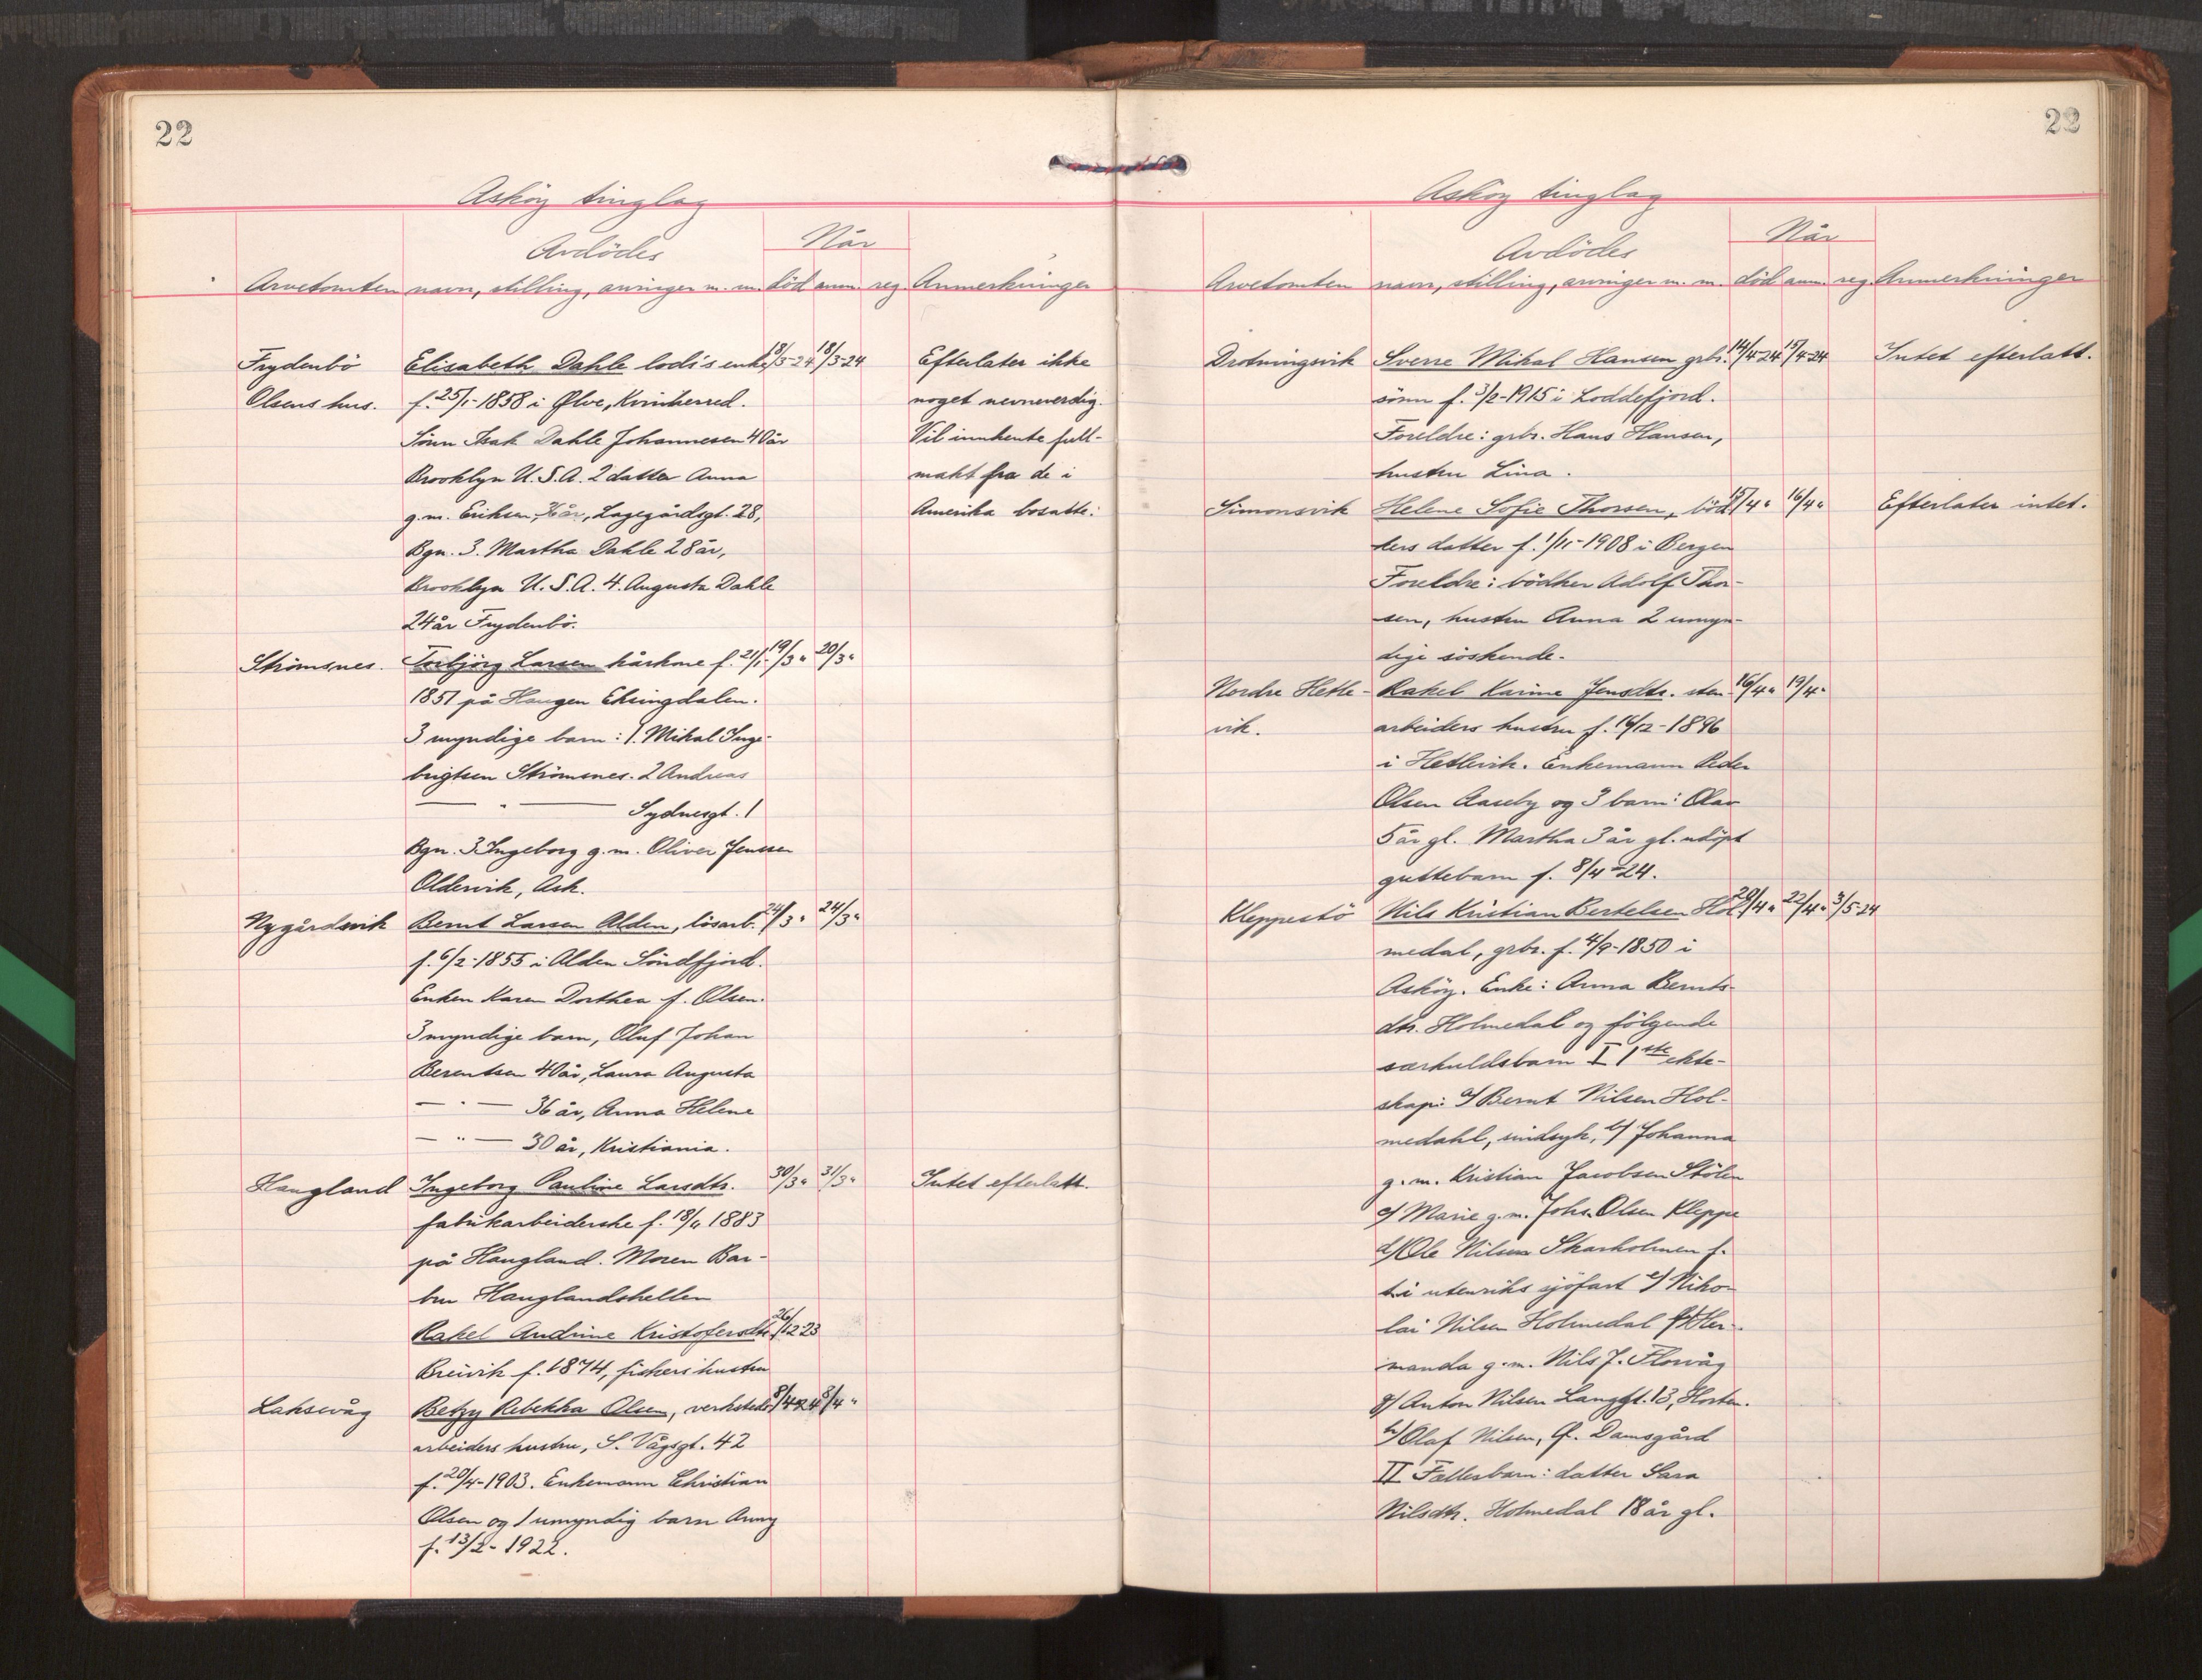 22
Asköy tinglag
Avdödes
Når
Arvetomten navn, stilling, arvinger m. m. död anm. reg. Anmerkninger
Frydenbö Elisabeth Dahle lodis enke 18/3-24 18/3-24 Efterlater ikke
Olsens hus. f. 25/1-1858 i Ølve, Kvinherred. noget nevneverdig.
Sönn Isak Dahle Johannesen 40 år Vil innhente full-
Brooklyn U.S.A. 2 datter Anna makt fra de i
g.m. Eriksen, år, Lagegårdsgt. 28, Amerika bosatte.
Bgn. 3. Martha Dahle 28 år,
Brooklyn U.S.A. 4. Augusta Dahle
24 år Frydenbö.
Strömsnes. Torbjörg Larsen kårkone f. 21/1- 19/3 " 20/3 "
1851 på Haugen Eksingdalen.
3 myndige barn: 1. Mikal Inge-
brigtsen Strömsnes. 2 Andreas
— " — Sydnesgt. 1
Bgn. 3. Ingeborg g.m. Oliver Jenssen
Oldervik, Ask.
Nygårdsvik Bernt Larsen Alden, lösarb. 24/3 " 24/3 "
f. 6/2-1855 i Alden Söndfjord.
Enken Karen Dorthea f. Olsen.
3 myndige barn, Oluf Johan
Berentsen 40 år, Laura Augusta
— " — 36 år, Anna Helene
— " — 30 år, Kristiania.
Haugland Ingeborg Pauline Larsdtr. 30/3 " 31/3 " Intet efterlatt.
fabrikarbeiderske f. 18/4 1883
på Haugland. Moren Bar-
bru Hauglandshellen
Rakel Andrine Kristofersdtr. 26/12 23
Breivik f. 1874, fiskers hustru
Laksevåg Betzy Rebekka Olsen, verksteds- 8/4 24 8/4 "
arbeiders hustru, S. Vågsgt. 42
f. 20/4-1903. Enkemann Christian
Olsen og 1 umyndig barn Anny
f. 13/2-1922.
22
Asköy tinglag
Avdödes
Når
Arvetomten navn, stilling, arvinger m. m. död anm. reg. Anmerkninger
Drotningsvik Sverre Mikal Hansen grbr. 14/4-24 15/4-24 Intet efterlatt.
sönn f. 3/2-1915 i Loddefjord.
Foreldre: grbr. Hans Hansen,
hustru Lina.
Simonsvik Helene Sofie Thorsen, böd- 15/4 " 16/4 " Efterlater intet.
kers datter f. 1/11-1908 i Bergen
Foreldre: bödker Adolf Thor-
sen, hustru Anna 2 umyn-
dige söskende.
Nordre Hetle- Rakel Karine Jensdtr. sten- 16/4 " 19/4 "
vik. arbeiders hustru f. 14/12-1896
i Hetlevik. Enkemann Peder
Olsen Aaseby og 3 barn: Olav
5 år gl. Martha 3 år gl. udöpt
guttebarn f. 8/4-24.
Kleppestö Nils Kristian Bertelsen Hol- 20/4 " 22/4 " 3/5-24
medal, grbr. f. 4/9-1850 i
Asköy. Enke: Anna Bernts-
dtr. Holmedal og fölgende
særkuldsbarn I 1ste ekte-
skap: a/ Bernt Nilsen Hol-
medahl, sindsyk, b/ Johanna
g.m. Kristian Jacobsen Stölen
c/ Marie g.m. Johs. Olsen Kleppe
d/ Ole Nilsen Skarholmen f.
t. i utenriks sjöfart e/ Niko-
lai Nilsen Holmedal f/ Her-
manda g.m. Nils J. Florvåg
g/ Anton Nilsen Langgt. 13, Horten.
h/ Olaf Nilsen, Damsgård
II Fellesbarn: datter Sara
Nilsdtr. Holmedal 18 år gl.